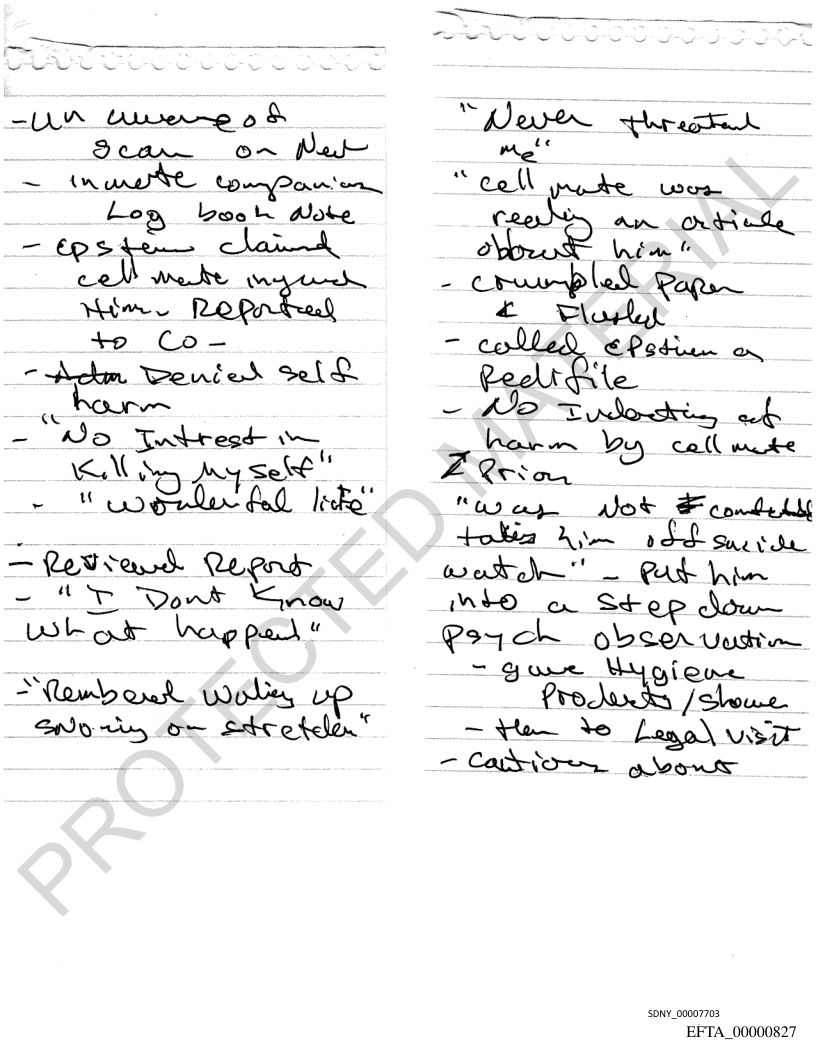 - Un aware of
scar on Neck
- inmate companion
Log book Note
- Epstein claimed
cell mate injured
Him - Reported
to CO -
- Adm Denied self
harm
- "No Intrest in
Killing Myself"
- "wonderful life"
- Reviewed Report
- "I Dont Know
what happend"
- "Rembered Waking up
snoring on stretcher"
"Never threatend
me"
"cell mate was
reading an article
about him"
- crumpled Paper
& Flushed
- called Epstien a
Pedifile
- No Indecting of
harm by cell mate
Prior
"was Not
taking him off sucide
watch" - Put him
into a step down
psych observation
- gave Hygiene
Products/Shower
- then to Legal visit
- cautious about
PROTECTED MATERIAL
SDNY_00007703
EFTA_00000827